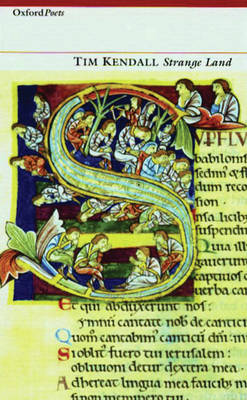 OxfordPoets
TIM KENDALL Strange Land
babiloni
dum reco
suspendi
Quia ill
captiuos
uerba can
Et qui abduxerunt nos:
ymnū cantate nob de cantic
Quom cantabim canticū dni: in
Si oblit fuero tui ierusalem:
obliuioni detur dextera mea.
Adhereat lingua mea faucib m
si non meminero tui